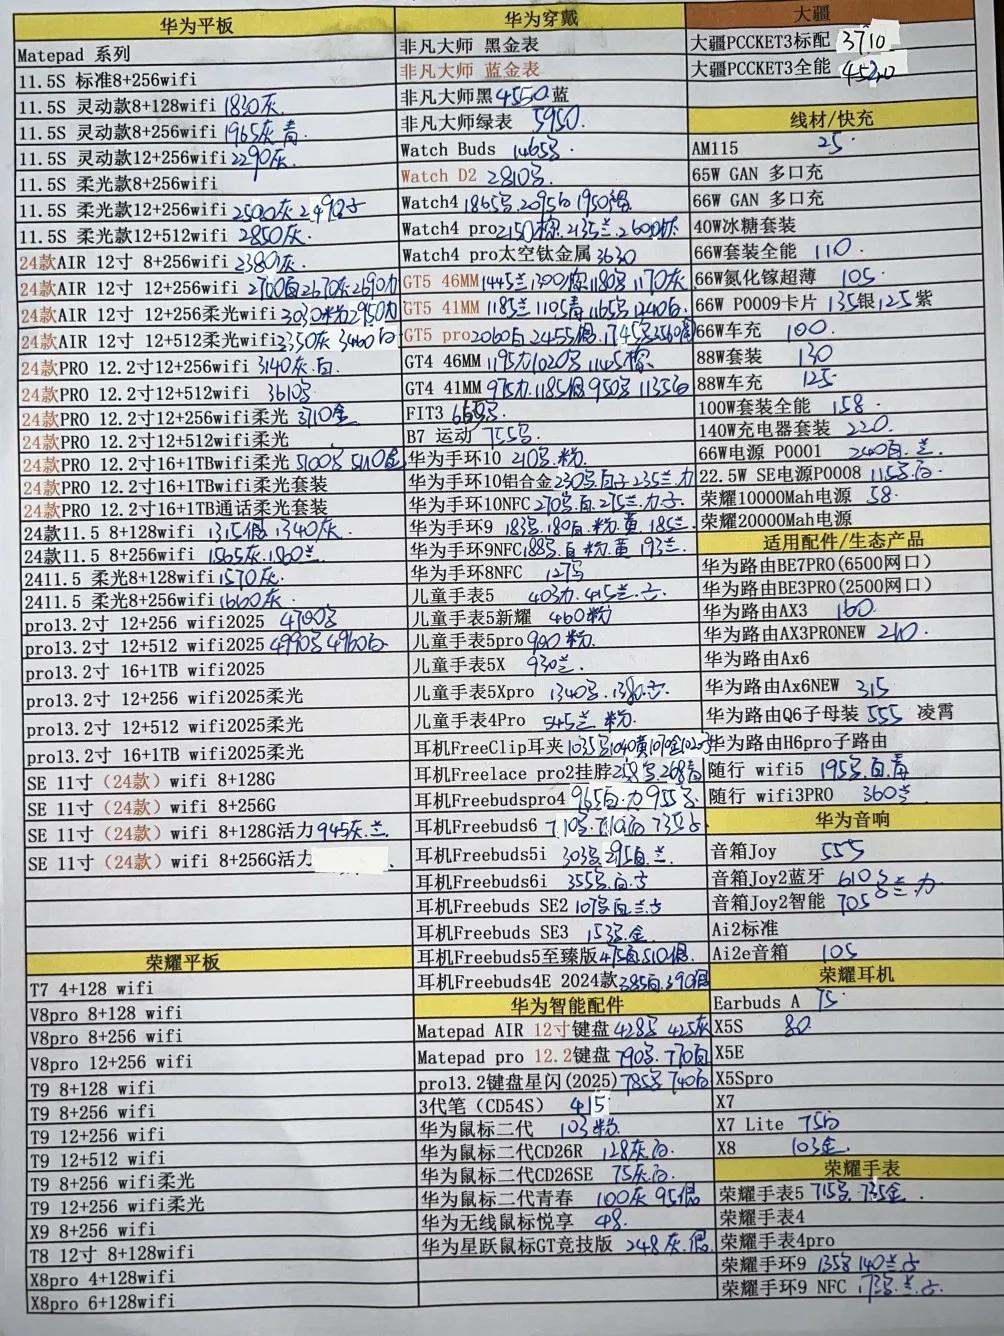 华为平板
Matepad 系列
11.5S 标准8+256wifi
11.5S 灵动款8+128wifi 1830灰.
11.5S 灵动款8+256wifi 1965灰.青
11.5S 灵动款12+256wifi 2290灰.
11.5S 柔光款8+256wifi
11.5S 柔光款12+256wifi
11.5S 柔光款12+512wifi 2850灰.
24款AIR 12寸 8+256wifi 2380灰.
24款AIR 12寸 12+256wifi 2700白2670灰2690力
24款AIR 12寸 12+256柔光wifi 3030粉2950力
24款AIR 12寸 12+512柔光wifi 3350灰 3460白
24款PRO 12.2寸12+256wifi 3140灰.白.
24款PRO 12.2寸12+512wifi 3610
24款PRO 12.2寸12+256wifi柔光 3710金
24款PRO 12.2寸12+512wifi柔光
24款PRO 12.2寸16+1TBwifi柔光 5100 5110金
24款PRO 12.2寸16+1TBwifi柔光套装
24款PRO 12.2寸16+1TB通话柔光套装
24款11.5 8+128wifi 1315 1340灰
24款11.5 8+256wifi 1565灰.1860兰
2411.5 柔光8+128wifi 1570灰.
2411.5 柔光8+256wifi 1660灰.
pro13.2寸 12+256 wifi2025 4700
pro13.2寸 12+512 wifi2025 4990 4960白
pro13.2寸 16+1TB wifi2025
pro13.2寸 12+256 wifi2025柔光
pro13.2寸 12+512 wifi2025柔光
pro13.2寸 16+1TB wifi2025柔光
SE 11寸（24款）wifi 8+128G
SE 11寸（24款）wifi 8+256G
SE 11寸（24款）wifi 8+128G活力 945灰.兰
SE 11寸（24款）wifi 8+256G活力
荣耀平板
T7 4+128 wifi
V8pro 8+128 wifi
V8pro 8+256 wifi
V8pro 12+256 wifi
T9 8+128 wifi
T9 8+256 wifi
T9 12+256 wifi
T9 12+512 wifi
T9 8+256 wifi柔光
T9 12+256 wifi柔光
X9 8+256 wifi
T8 12寸 8+128wifi
X8pro 4+128wifi
X8pro 6+128wifi
华为穿戴
非凡大师 黑金表
非凡大师 蓝金表
非凡大师黑 4550 蓝
非凡大师绿表 5950.
Watch Buds 1465
Watch D2 2810
Watch4 1865 2095白 1950
Watch4 pro 2150棕.2135兰.2600
Watch4 pro太空钛金属 3630
GT5 46MM 1445兰1300棕1180 1170灰
GT5 41MM 1185兰1105青1165 1240白.
GT5 pro 2060白 2455
GT4 46MM 1195力1020 1145棕.
GT4 41MM 975力.1185 950 1135白
FIT3
B7 运动 755
华为手环10 210 .粉.
华为手环10铝合金 230 .白子 235兰.力
华为手环10NFC 270 .白.275兰.力.子.
华为手环9 183 .180白.粉.黄 185兰.
华为手环9NFC 188 .白 粉.黄 193兰.
华为手环8NFC 127
儿童手表5 403力.415兰.
儿童手表5新耀 460粉
儿童手表5pro 990 粉.
儿童手表5X 930兰.
儿童手表5Xpro 1340
儿童手表4Pro 545兰 粉.
耳机FreeClip耳夹 1035 1040黄1070金
耳机Freelace pro2挂脖 258 .268青
耳机Freebudspro4 965白.力 955
耳机Freebuds6 710 710白 735
耳机Freebuds5i 303 295白.兰.
耳机Freebuds6i 355 .白.
耳机Freebuds SE2 107 白 兰.
耳机Freebuds SE3 153 .金.
耳机Freebuds5至臻版 475白.510
耳机Freebuds4E 2024款 385白.390
华为智能配件
Matepad AIR 12寸键盘 428 425灰
Matepad pro 12.2键盘 790 .770白
pro13.2键盘星闪(2025) 785 740白
3代笔（CD54S） 415
华为鼠标二代 103粉.
华为鼠标二代CD26R 128灰.白.
华为鼠标二代CD26SE 75灰.白.
华为鼠标二代青春 100灰 95
华为无线鼠标悦享 48.
华为星跃鼠标GT竞技版 248灰.
大疆
大疆PCCKET3标配 3710
大疆PCCKET3全能
线材/快充
AM115 25.
65W GAN 多口充
66W GAN 多口充
40W冰糖套装
66W套装全能 110.
66W氮化镓超薄 105.
66W P0009卡片 135银125紫
66W车充 100.
88W套装 130
88W车充 125.
100W套装全能 158.
140W充电器套装 220.
66W电源 P0001 240白.兰.
22.5W SE电源P0008 115 白.
荣耀10000Mah电源 58.
荣耀20000Mah电源
适用配件/生态产品
华为路由BE7PRO(6500网口)
华为路由BE3PRO(2500网口)
华为路由AX3 160.
华为路由AX3PRONEW 210.
华为路由Ax6
华为路由Ax6NEW 315
华为路由Q6子母装 555 凌霄
华为路由H6pro子路由
随行 wifi5 195 .白.青
随行 wifi3PRO 360兰
华为音响
音箱Joy 555
音箱Joy2蓝牙 610
音箱Joy2智能 705 兰.力
Ai2标准
Ai2e音箱 105
荣耀耳机
Earbuds A 75.
X5S 80.
X5E
X5Spro
X7
X7 Lite 75白
X8 103金.
荣耀手表
荣耀手表5 715 .735金.
荣耀手表4
荣耀手表4pro
荣耀手环9 135 140兰
荣耀手环9 NFC